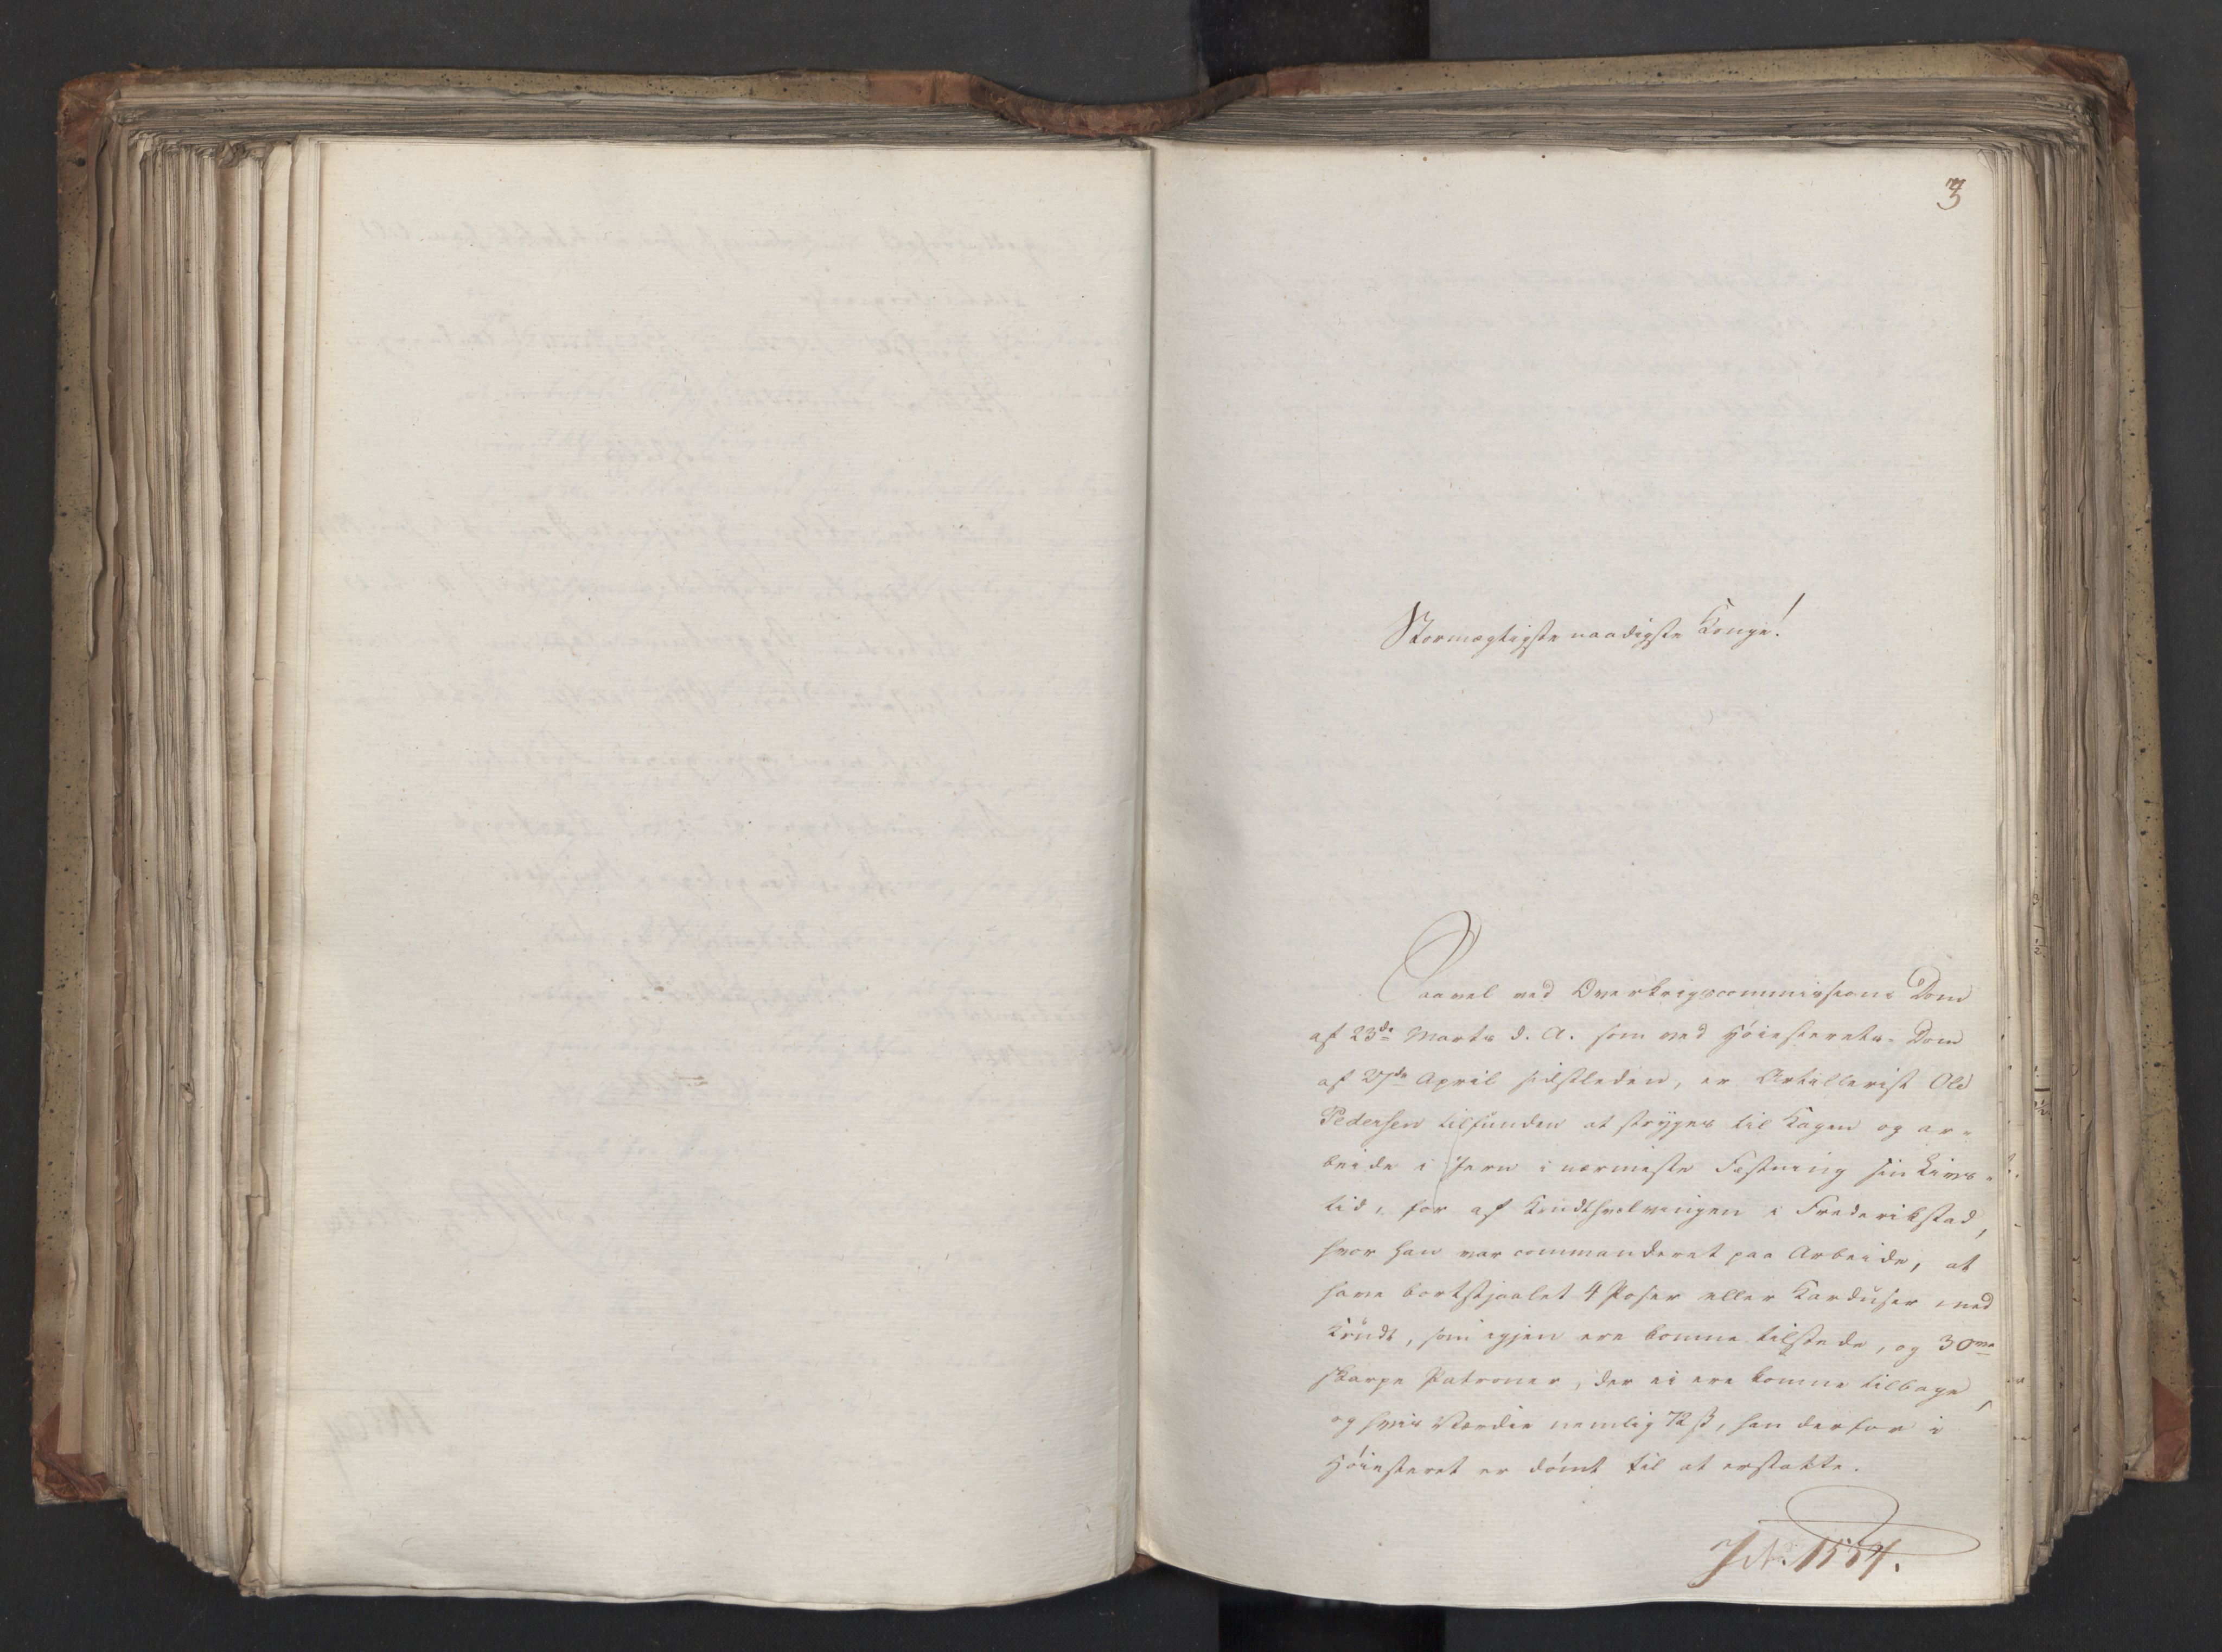 3
Stormægtigste naadigste Konge!
Saavel ved Overkrigscommissions Dom
af 23de Marts d. A. som ved Höiesterets-Dom
af 27de April sidstleden, er Artillerist Ole
Pedersen tilfunden at stryges til Kagen og ar-
beide i Jern i nærmeste Fæstning sin Livs-
tid, for af Krudthvelvingen i Frederikstad,
hvor han var commanderet paa Arbeide, at
have bortstjaalet 4 Poser eller Karduser med
Krudt, som igjen ere komne tilstede, og 30
skarpe Patroner, der ei ere komne tilbage,
og hvis Værdie nemlig 72 ß, han derfor i
Höiesteret er dömt til at erstatte.
J. No. 1554.